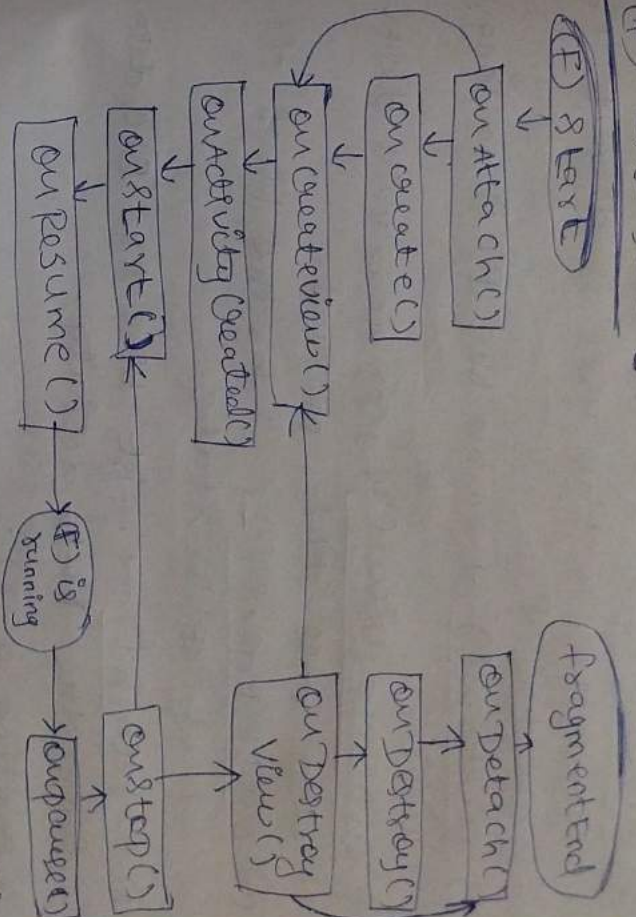 (F) Start
onAttach()
onCreate()
onCreateView()
onActivityCreated()
onStart()
onResume()
(F) is
running
onPause()
onStop()
onDestroy
View()
onDestroy()
onDetach()
fragment End